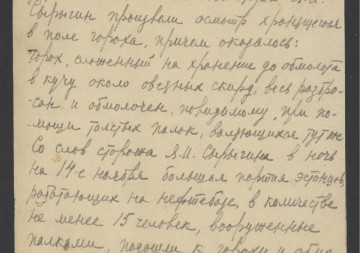 Сырыгин произвели осмотр хранящегося
в поле гороха, причем оказалось:
горох, сложенный на хранение до обмолота
в кучу около овсяных скирд, весь разбро-
сан и обмолочен, повидимому, при по-
мощи толстых палок, валяющихся тут же
Со слов сторожа Сырыгина в ночь
на 14-е ноября большая партия эстонцев,
работающих на нефтебазе, в количестве
не менее 15 человек, вооруженные
палками, подошли к гороху и